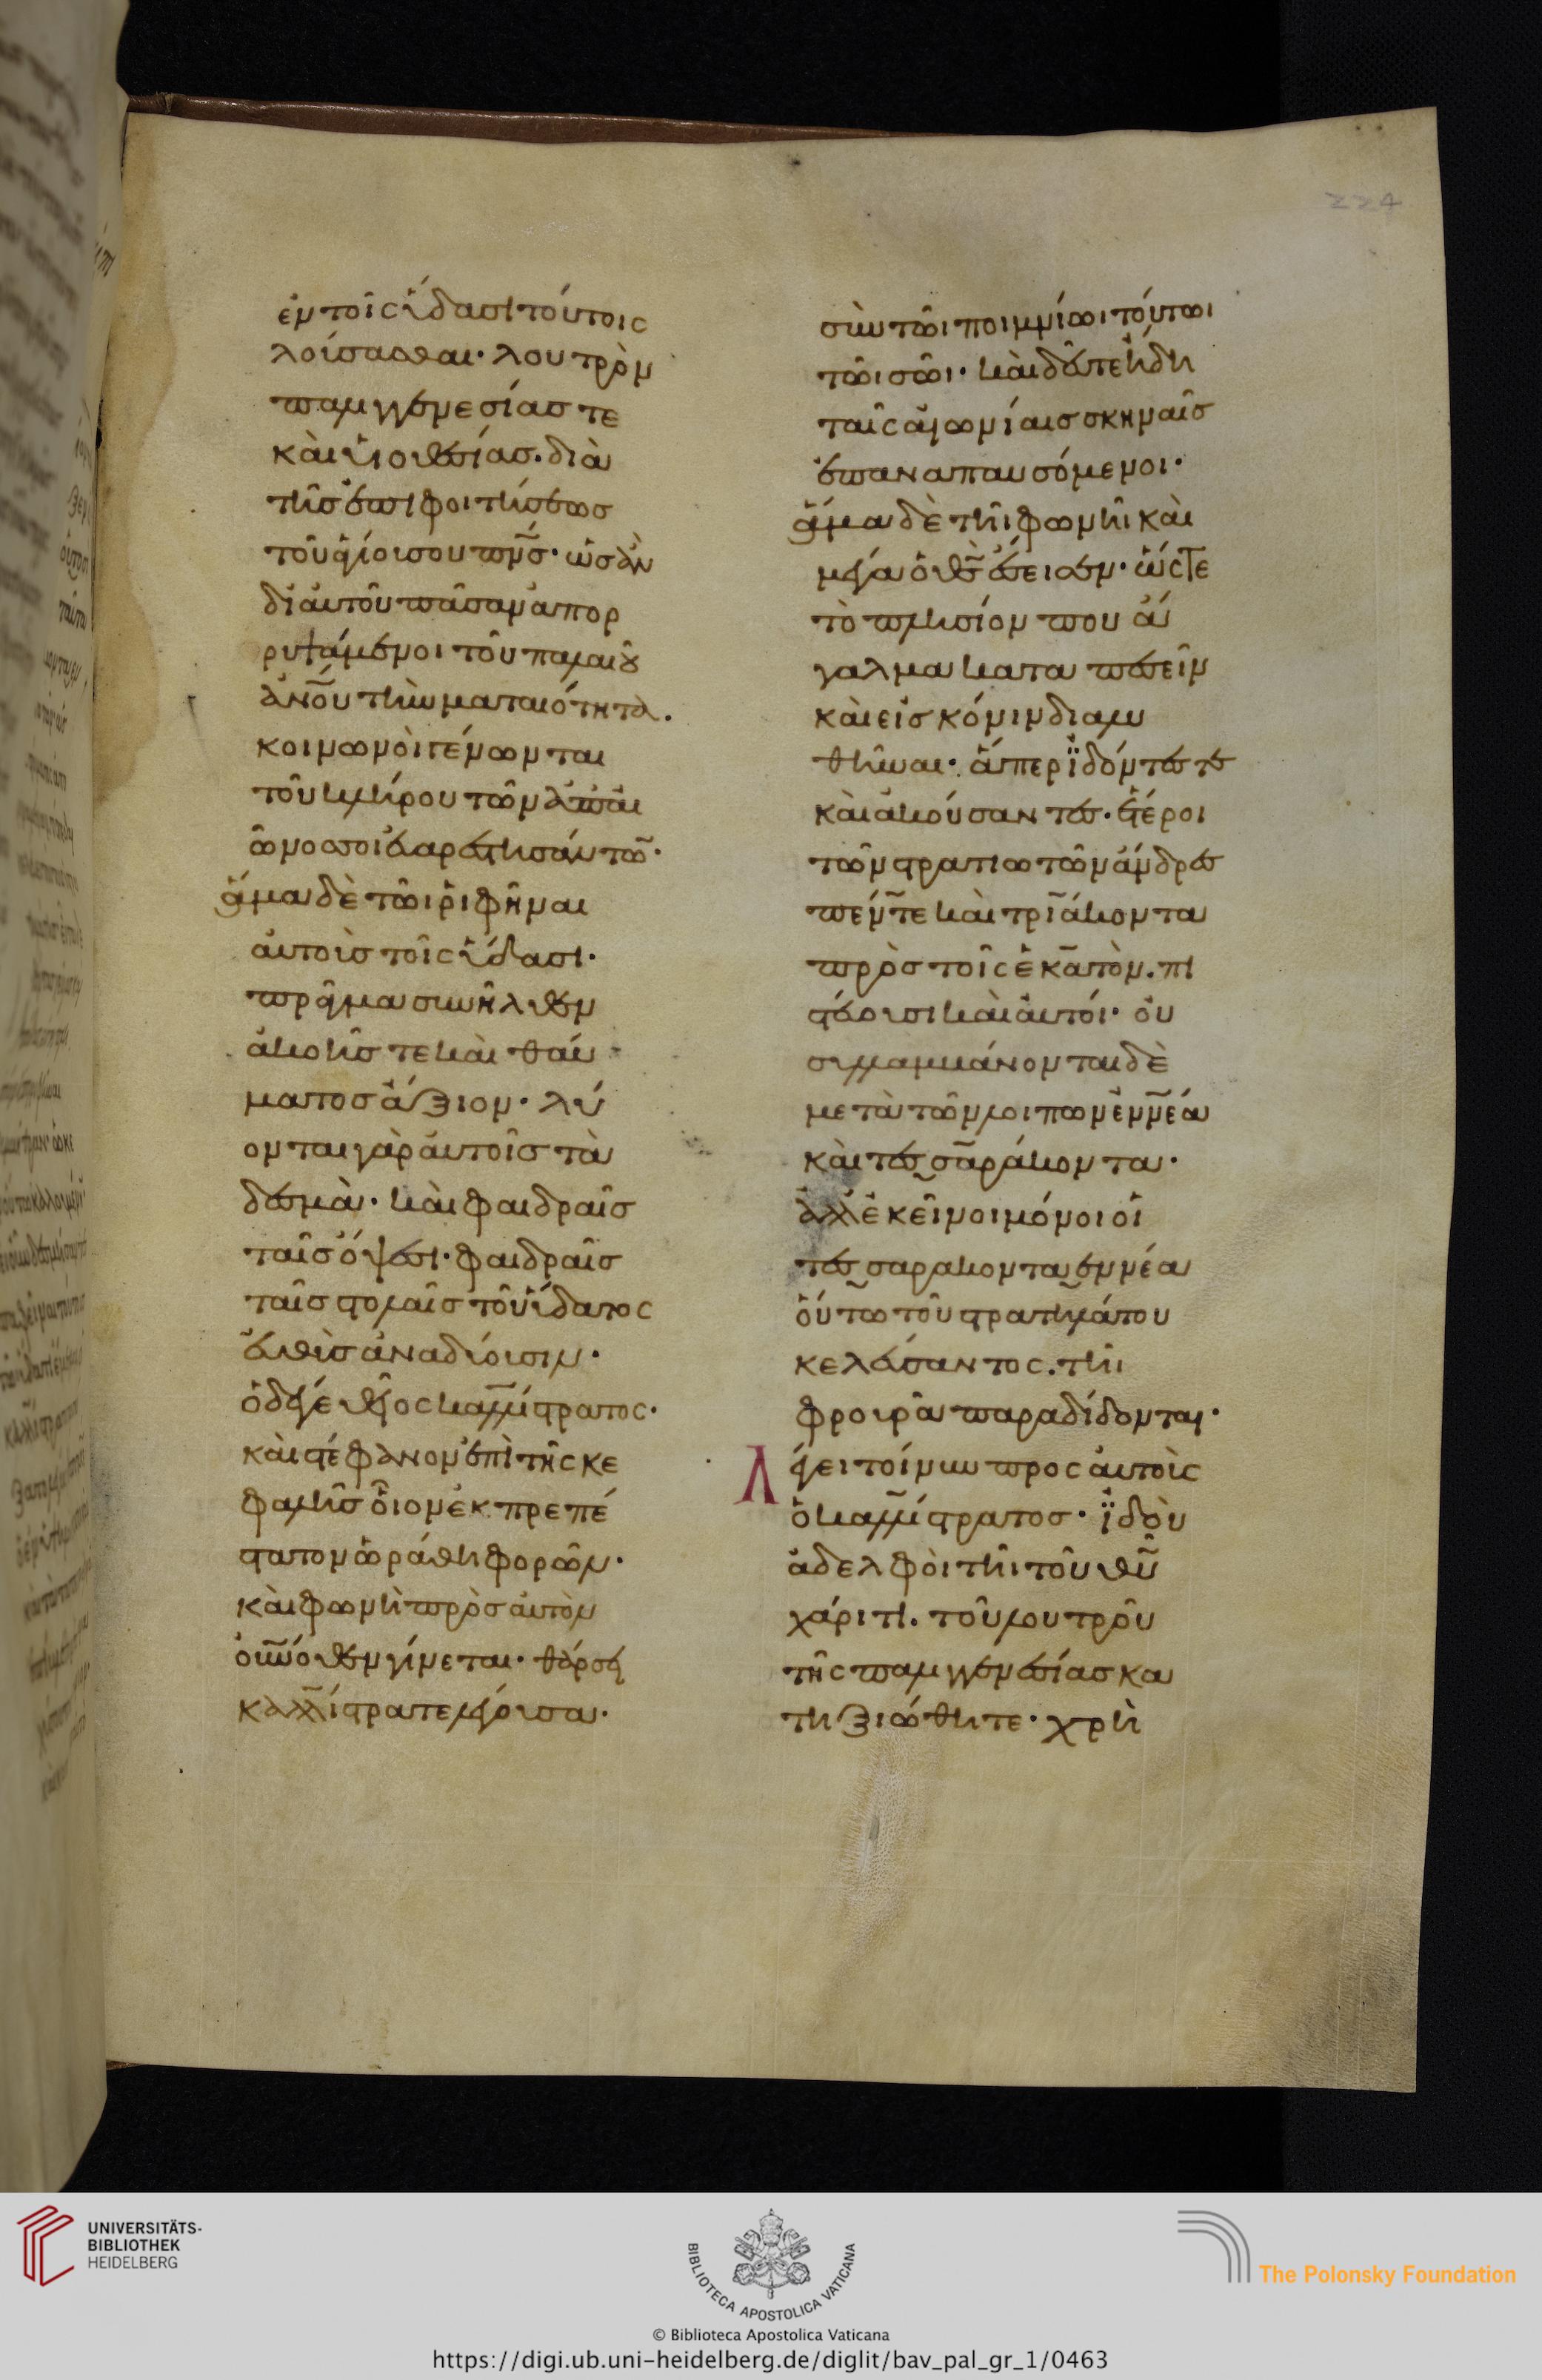 224
ἐν τοῖς ὕδασι τούτοις
λούσασθαι· λουτρὸν
παλιγγενεσίας τε
καὶ υἱοθεσίας· διὰ
τῆς ἐπιφοιτήσεως
τοῦ ἁγίου σου πν̅ς· ὡς ἂν
δι' αὐτοῦ πᾶσαν ἀπορ
ρυψάμενοι τοῦ παλαιοῦ
ἀν̅ου τὴν ματαιότητα.
κοινωνοὶ γένωνται
τοῦ κλήρου τῶν ἀπ' αἰ
ῶνος σοι εὐαρεστησάντω̅·
ἅμα δὲ τῶι ῥιφῆναι
αὐτοὺς τοῖς ὕδασι·
πρᾶγμα συνῆλθεν
ἀκοῆς τε καὶ θαύ
ματος ἄξιον· λύ
ονται γὰρ αὐτοῖς τὰ
δεσμὰ· καὶ φαιδραῖς
ταῖς ὄψεσι· φαιδραῖς
ταῖς στολαῖς τοῦ ὕδατος
εὐθὺς ἀναδύουσιν·
ὁ δέ γε θεῖος καλλίστρατος·
καὶ στέφανον ἐπὶ τῆς κε
φαλῆς οἷον ἐκπρεπέ
στατον ὡράθη φορῶν·
καὶ φωνὴ πρὸς αὐτὸν
οὐ̅νόθεν γίνεται· θάρσει
καλλίστρατε λέγουσα·
σὺν τῶι ποιμνίωι τούτωι
τῶι σῶι· καὶ δεῦτε ἤδη
ταῖς αἰωνίαις σκηναῖς
ἐπαναπαυσόμενοι·
ἅμα δὲ τῆι φωνῆι καὶ
μέγα ὁ θ̅ς ἔσεισεν· ὥστε
τὸ πλησίον που ἄ
γαλμα καταπεσεῖν
καὶ εἰς κόνιν διαλυ
θῆναι· ἅπερ ἰδόντες τε
καὶ ἀκούσαντες· ἕτεροι
τῶν στρατιωτῶν ἄνδρες
πέντε καὶ τριάκοντα
πρὸς τοῖς ἑκατὸν. πι
στεύουσι καὶ αὐτοί· οὐ
συλλαμβάνονται δὲ
μετὰ τῶν λοιπῶν ἐννέα
καὶ τεσσαράκοντα·
ἀλλ' ἐκεῖνοι μόνοι οἱ
τεσσαρακονταεννέα
οὕτω τοῦ στρατηλάτου
κελεύσαντος. τῆι
φρουρᾶ παραδίδονται·
Λέγει τοίνυν προς αὐτοὺς
ὁ καλλίστρατος· ἰδοὺ
ἀδελφοὶ τῆι τοῦ θ̅υ
χάριτι. τοῦ λουτροῦ
τῆς παλιγγενεσίας κα
τηξιώθητε· χρὴ
UNIVERSITÄTS-
BIBLIOTHEK
HEIDELBERG
BIBLIOTECA APOSTOLICA VATICANA
The Polonsky Foundation
© Biblioteca Apostolica Vaticana
https://digi.ub.uni-heidelberg.de/diglit/bav_pal_gr_1/0463